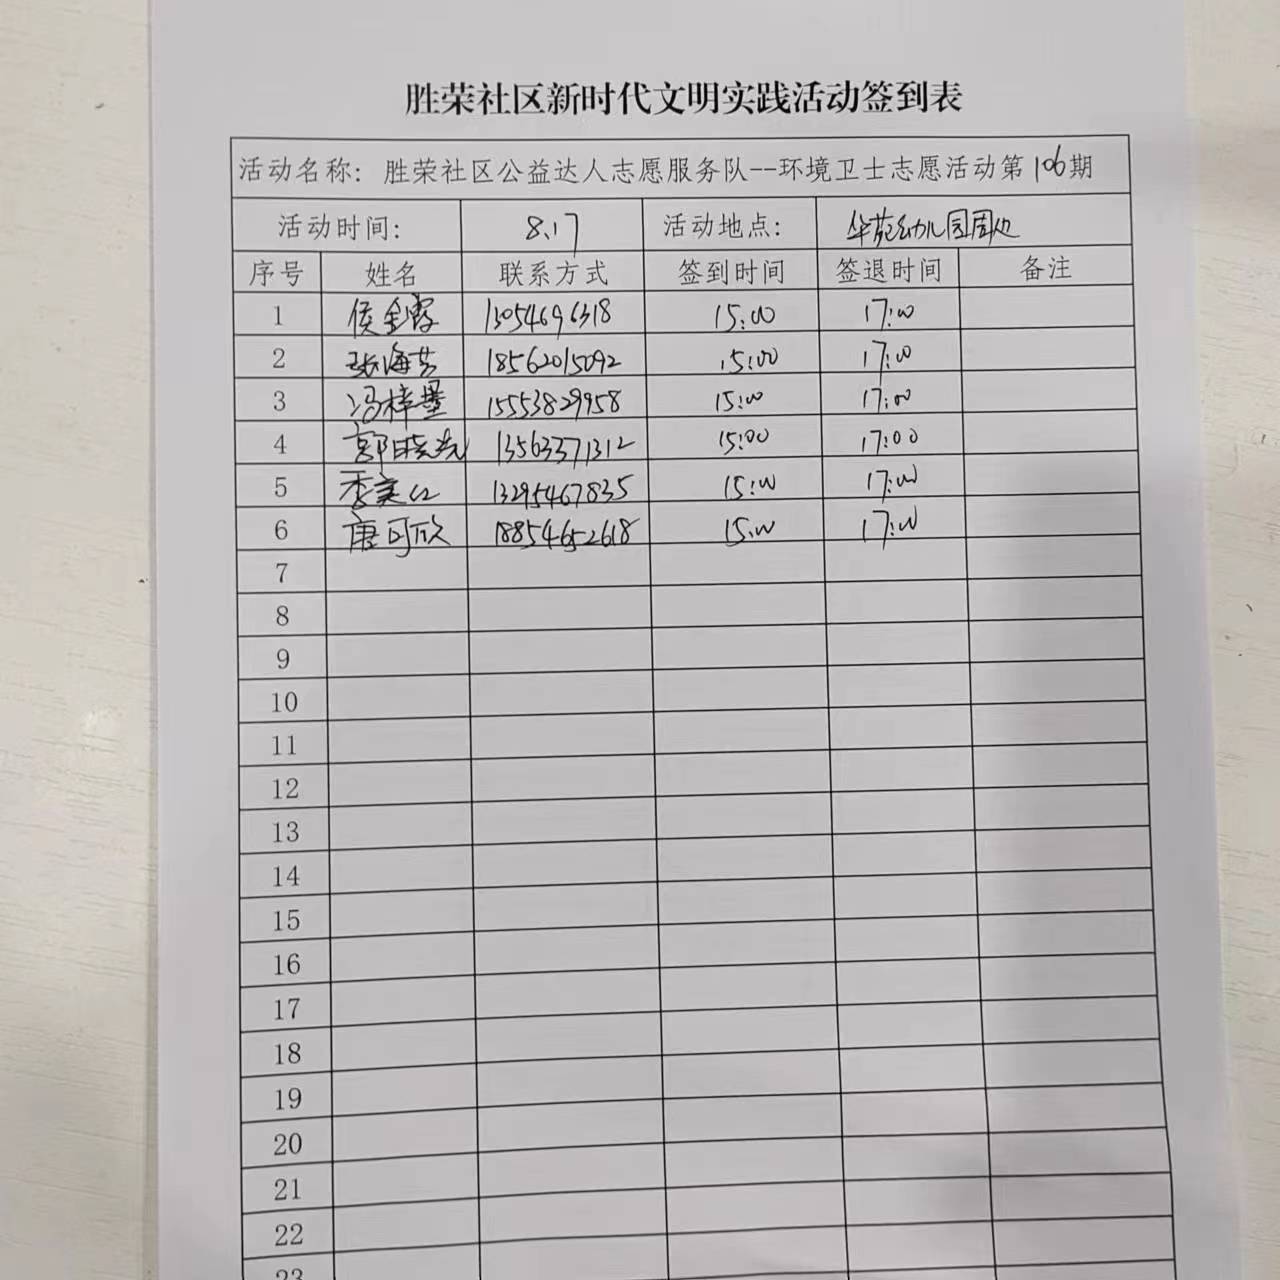 胜荣社区新时代文明实践活动签到表
活动名称：胜荣社区公益达人志愿服务队--环境卫士志愿活动第106期
活动时间： 8.17 活动地点： 华苑幼儿园周边
序号 姓名 联系方式 签到时间 签退时间 备注
1 侯金霞 13054696318 15:00 17:00
2 张海芸 18562015092 15:00 17:00
3 冯梓墨 15553829958 15:00 17:00
4 郭晓光 13563371312 15:00 17:00
5 季美红 13295467835 15:00 17:00
6 唐可欣 18854652618 15:00 17:00
7
8
9
10
11
12
13
14
15
16
17
18
19
20
21
22
23